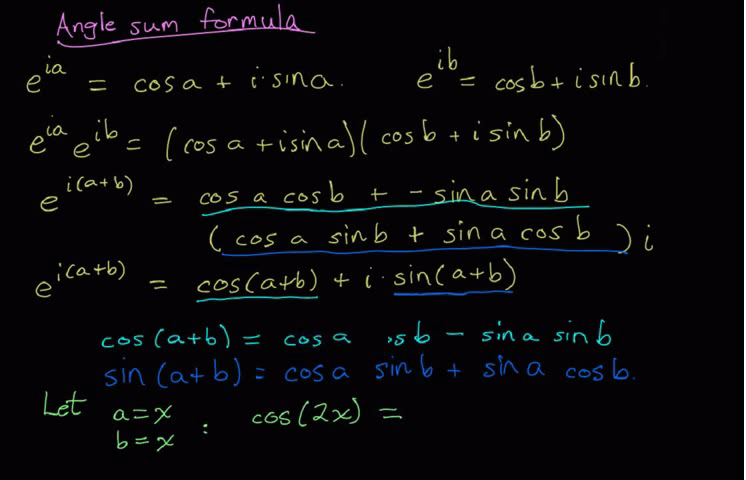 Angle sum formula
e^{ia} = cos a + i · sin a. e^{ib} = cos b + i sin b.
e^{ia} e^{ib} = (cos a + i sin a)(cos b + i sin b)
e^{i(a+b)} = cos a cos b + - sin a sin b
(cos a sin b + sin a cos b) i
e^{i(a+b)} = cos(a+b) + i · sin(a+b)
cos (a+b) = cos a sb - sin a sin b
sin (a+b) = cos a sin b + sin a cos b.
Let a = x
b = x . cos(2x) =